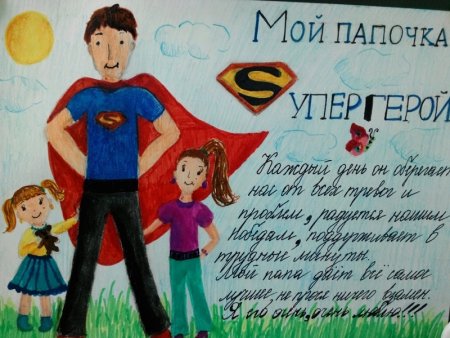 Мой папочка
Супергерой
Каждый день он оберегает
нас от всех тревог и
проблем, радуется нашим
победам, поддерживает в
трудные минуты.
Мой папа даёт всё самое
лучшее, не прося ничего взамен.
Я его очень, очень люблю!!!